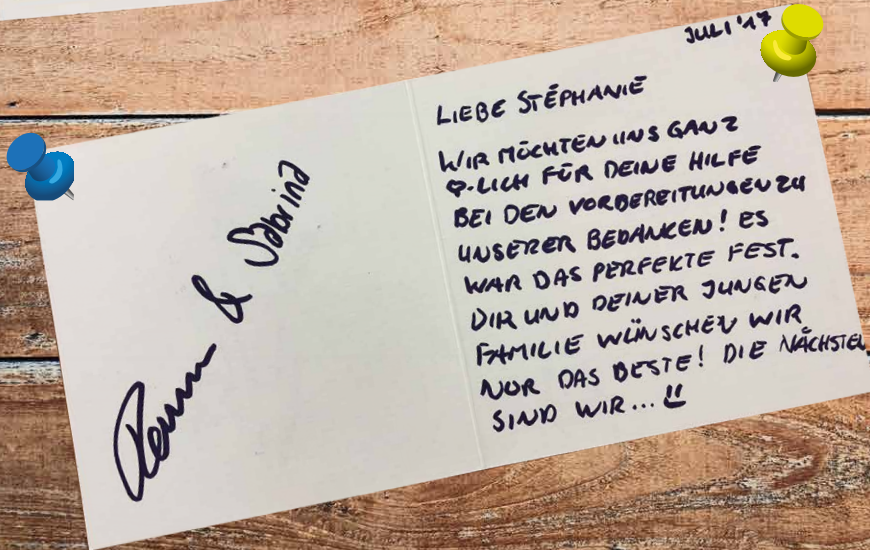 JULI '17
LIEBE STÉPHANIE
WIR MÖCHTEN UNS GANZ
♡-LICH FÜR DEINE HILFE
BEI DEN VORBEREITUNGEN ZU
UNSERER BEDANKEN! ES
WAR DAS PERFEKTE FEST.
DIR UND DEINER JUNGEN
FAMILIE WÜNSCHEN WIR
NUR DAS BESTE! DIE NÄCHSTEN
SIND WIR...
& Sabrina